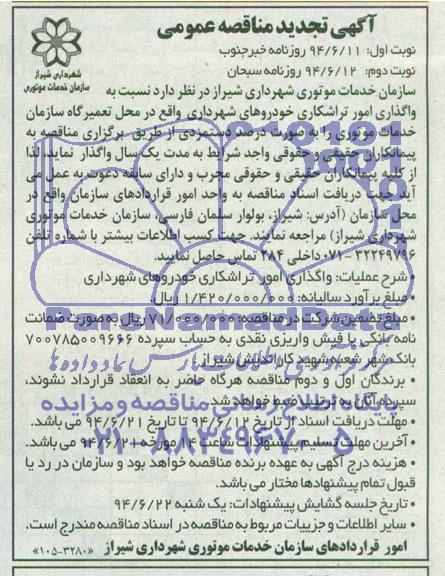 آگهی تجدید مناقصه عمومی
نوبت اول: ۹۴/۶/۱۱ روزنامه خبرجنوب
نوبت دوم: ۹۴/۶/۱۲ روزنامه سبحان
شهرداری شیراز
سازمان خدمات موتوری
سازمان خدمات موتوری شهرداری شیراز در نظر دارد نسبت به
واگذاری امور تراشکاری خودروهای شهرداری واقع در محل تعمیرگاه سازمان
خدمات موتوری را به صورت درصد دستمزدی از طریق برگزاری مناقصه به
پیمانکاران حقیقی و حقوقی واجد شرایط به مدت یک سال واگذار نماید، لذا
از کلیه پیمانکاران حقیقی و حقوقی مجرب و دارای سابقه دعوت به عمل می
آید جهت دریافت اسناد مناقصه به واحد امور قراردادهای سازمان واقع در
محل سازمان (آدرس: شیراز، بولوار سلمان فارسی، سازمان خدمات موتوری
شهرداری شیراز) مراجعه نمایند. جهت کسب اطلاعات بیشتر با شماره تلفن
۳۲۲۴۹۷۹۶-۰۷۱ داخلی ۲۸۴ تماس حاصل نمایید.
• شرح عملیات: واگذاری امور تراشکاری خودروهای شهرداری
• مبلغ برآورد سالیانه: ۱/۴۲۰/۰۰۰/۰۰۰ ریال
• مبلغ تضمین شرکت در مناقصه: ۷۱/۰۰۰/۰۰۰ ریال به صورت ضمانت
نامه بانکی یا فیش واریزی نقدی به حساب سپرده ۷۰۰۷۸۵۰۰۹۶۶۶
بانک شهر شعبه شهید کاراندیش شیراز
• برندگان اول و دوم مناقصه هرگاه حاضر به انعقاد قرارداد نشوند،
سپرده آنان به ترتیب ضبط خواهد شد
• مهلت دریافت اسناد از تاریخ ۹۴/۶/۱۲ تا تاریخ ۹۴/۶/۲۱ می باشد.
• آخرین مهلت تسلیم پیشنهادات ساعت ۱۴ مورخه ۹۴/۶/۲۱ می باشد.
• هزینه درج آگهی به عهده برنده مناقصه خواهد بود و سازمان در رد یا
قبول تمام پیشنهادها مختار می باشد.
• تاریخ جلسه گشایش پیشنهادات: یک شنبه ۹۴/۶/۲۲
• سایر اطلاعات و جزییات مربوط به مناقصه در اسناد مناقصه مندرج است.
امور قراردادهای سازمان خدمات موتوری شهرداری شیراز «۱۰۵-۳۲۸۰»
ParsNamadData
پایگاه اطلاع رسانی مناقصه و مزایده
۰۲۱-۸۸۳۴۹۶۷۰-۵